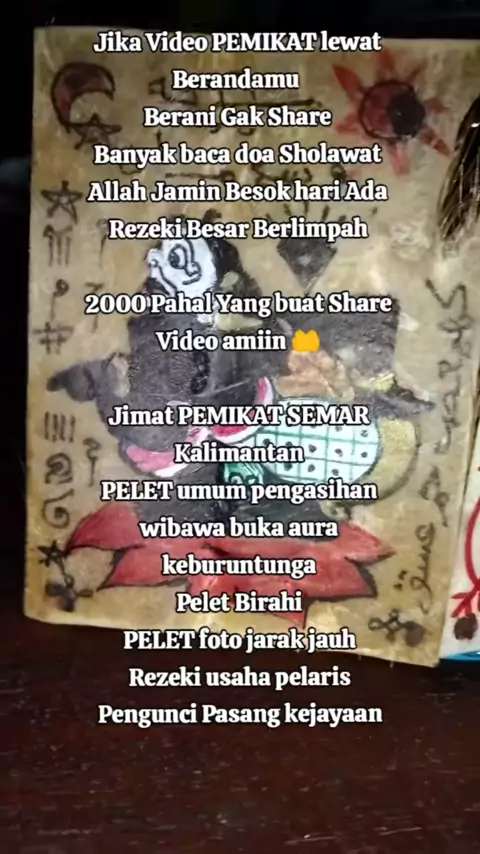 Jika Video PEMIKAT lewat
Berandamu
Berani Gak Share
Banyak baca doa Sholawat
Allah Jamin Besok hari Ada
Rezeki Besar Berlimpah
2000 Pahal Yang buat Share
Video amiin 🤲
Jimat PEMIKAT SEMAR
Kalimantan
PELET umum pengasihan
wibawa buka aura
keburuntunga
Pelet Birahi
PELET foto jarak jauh
Rezeki usaha pelaris
Pengunci Pasang kejayaan